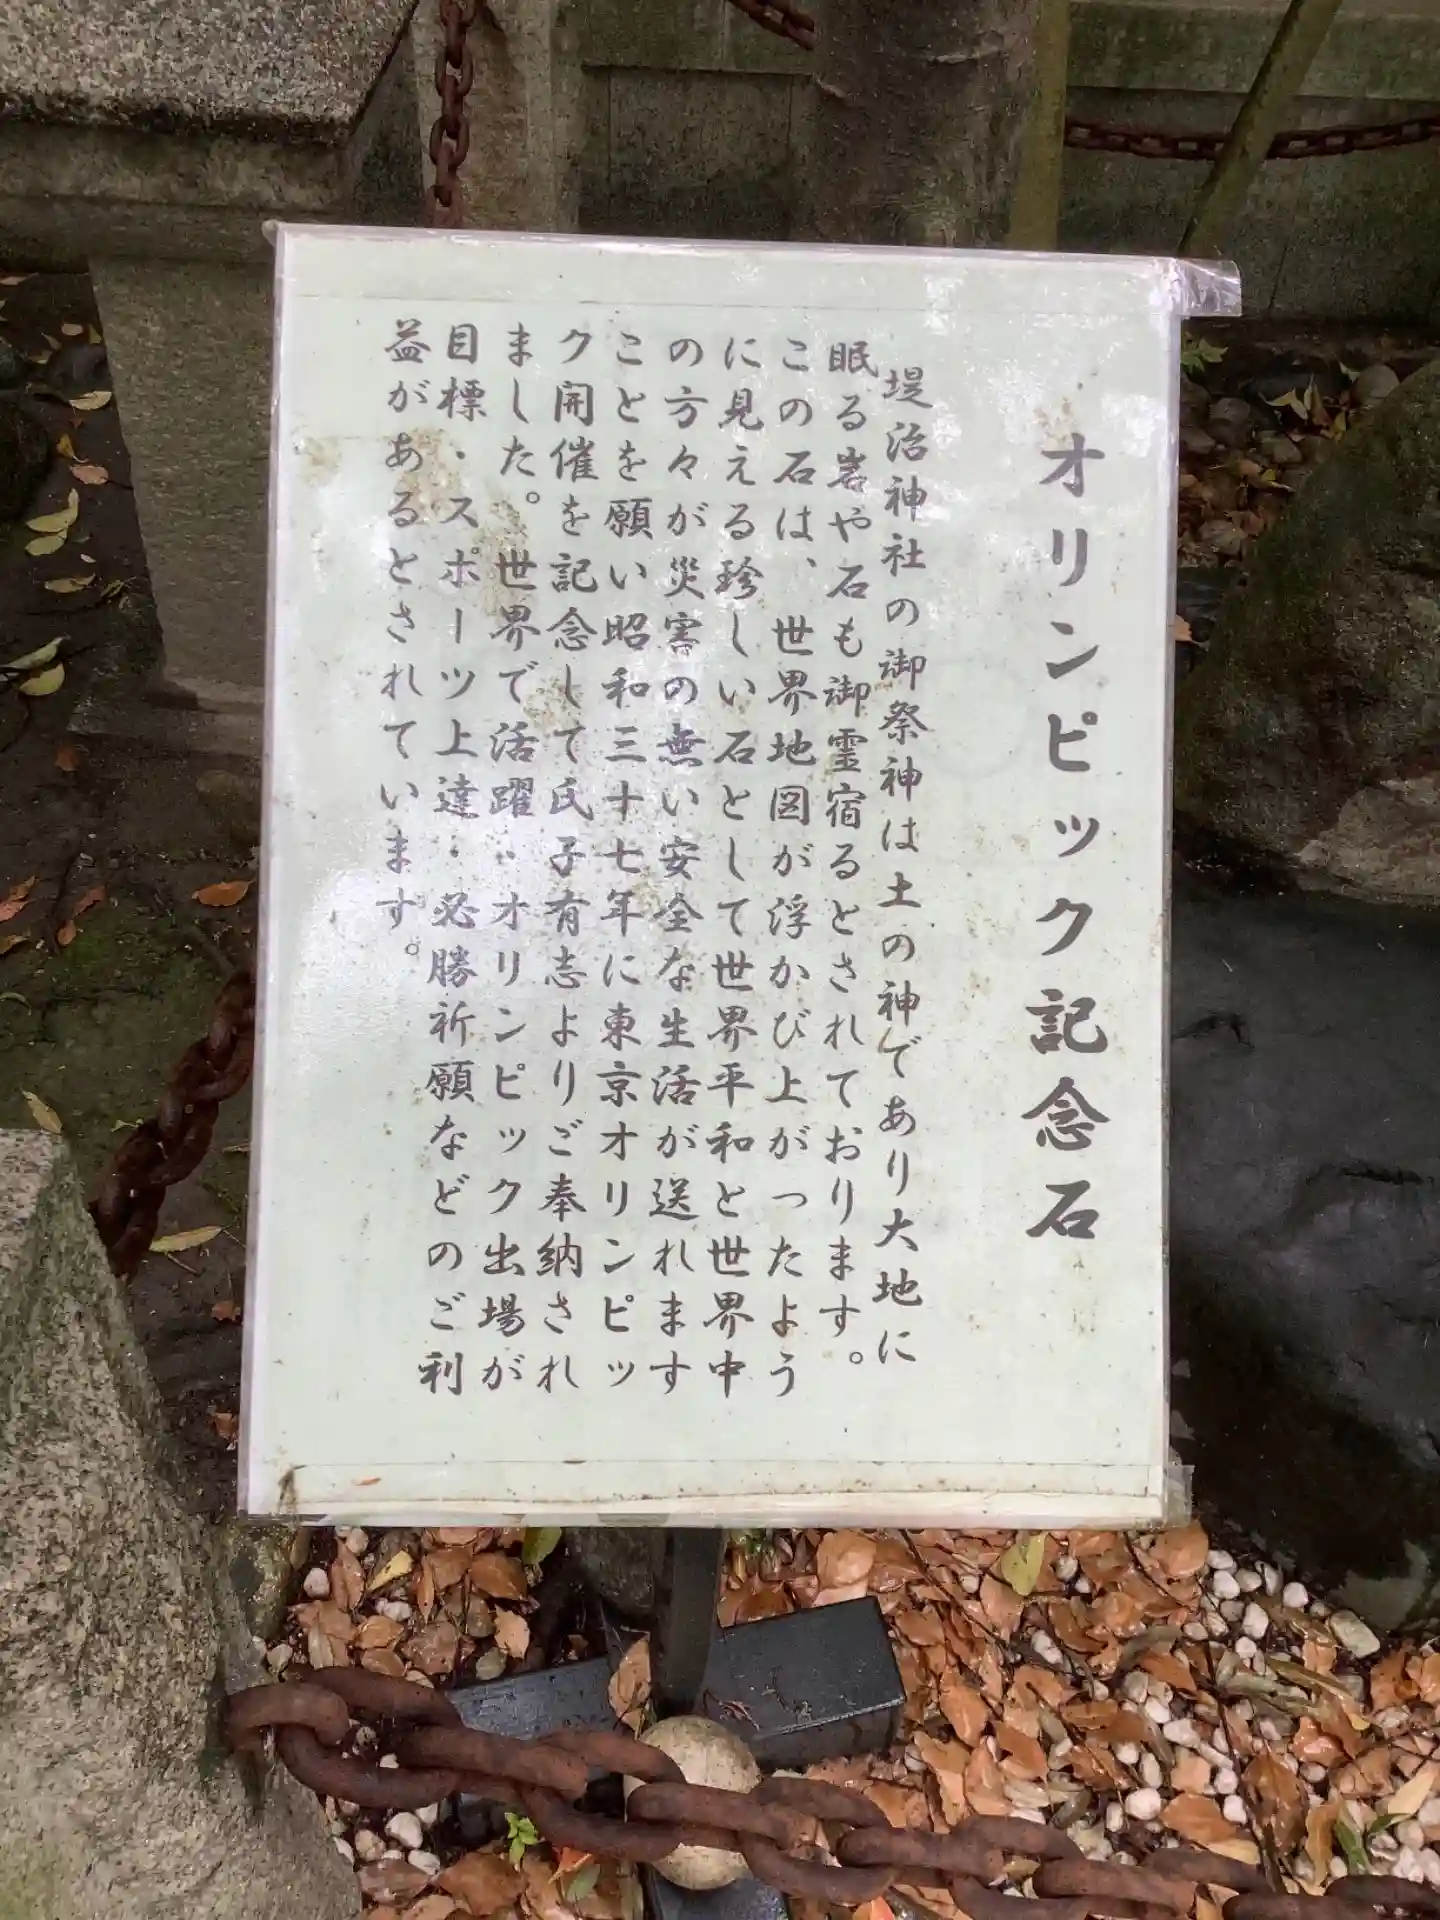 オリンピック記念石
堤治神社の御祭神は土の神であり大地に
眠る岩や石も御霊宿るとされております。
この石は、世界地図が浮かび上がったよう
に見える珍しい石として世界平和と世界中
の方々が災害の無い安全な生活が送れます
ことを願い昭和三十七年に東京オリンピッ
ク開催を記念して氏子有志よりご奉納され
ました。世界で活躍・オリンピック出場が
目標・スポーツ上達・必勝祈願などのご利
益があるとされています。